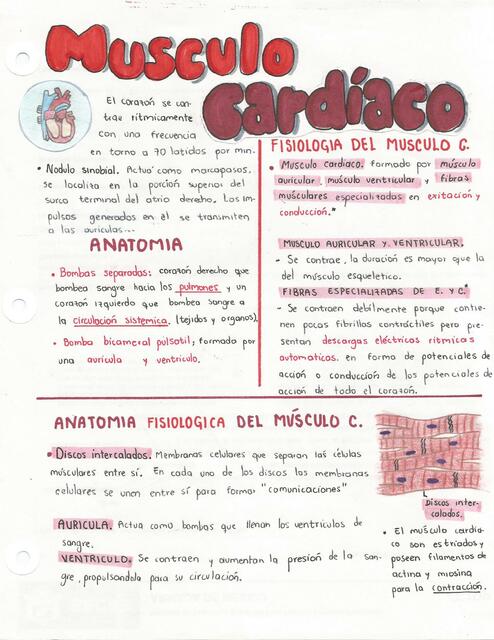 Musculo
Cardíaco
El corazón se con-
trae rítmicamente
con una frecuencia
en torno a 70 latidos por min.
• Nodulo sinobial. Actúa como marcapasos,
se localiza en la porción superior del
surco terminal del atrio derecho. Los im-
pulsos generados en él se transmiten
a las auriculas...
ANATOMIA
• Bombas separadas: corazón derecho que
bombea sangre hacia los pulmones y un
corazón izquierdo que bombea sangre a
la circulación sistemica, (tejidos y organos).
• Bomba bicameral pulsatil, formada por
una auricula y ventriculo.
FISIOLOGIA DEL MUSCULO C.
• Musculo cardiaco. formado por músculo
auricular, músculo ventricular y fibras
músculares especializadas en exitación y
conducción.*
MUSCULO AURICULAR Y VENTRICULAR.
- Se contrae, la duración es mayor que la
del músculo esqueletico.
FIBRAS ESPECIALIZADAS DE E. Y C.*
- Se contraen debilmente porque contie-
nen pocas fibrillas contráctiles pero pre-
sentan descargas eléctricas rítmicas
automaticas. en forma de potenciales de
acción o conducción de los potenciales de
acción de todo el corazón.
ANATOMIA FISIOLOGICA DEL MÚSCULO C.
• Discos intercalados. Membranas celulares que separan las células
músculares entre sí. En cada uno de los discos las membranas
celulares se unen entre sí para formar "comunicaciones"
AURICULA. Actua como bombas que llenan los ventriculos de
sangre.
VENTRICULO. Se contraen y aumentan la presión de la san-
gre, propulsandola para su circulación.
Discos inter-
calados.
• El músculo cardia-
co son estriados y
poseen filamentos de
actina y miosina
para la contracción.